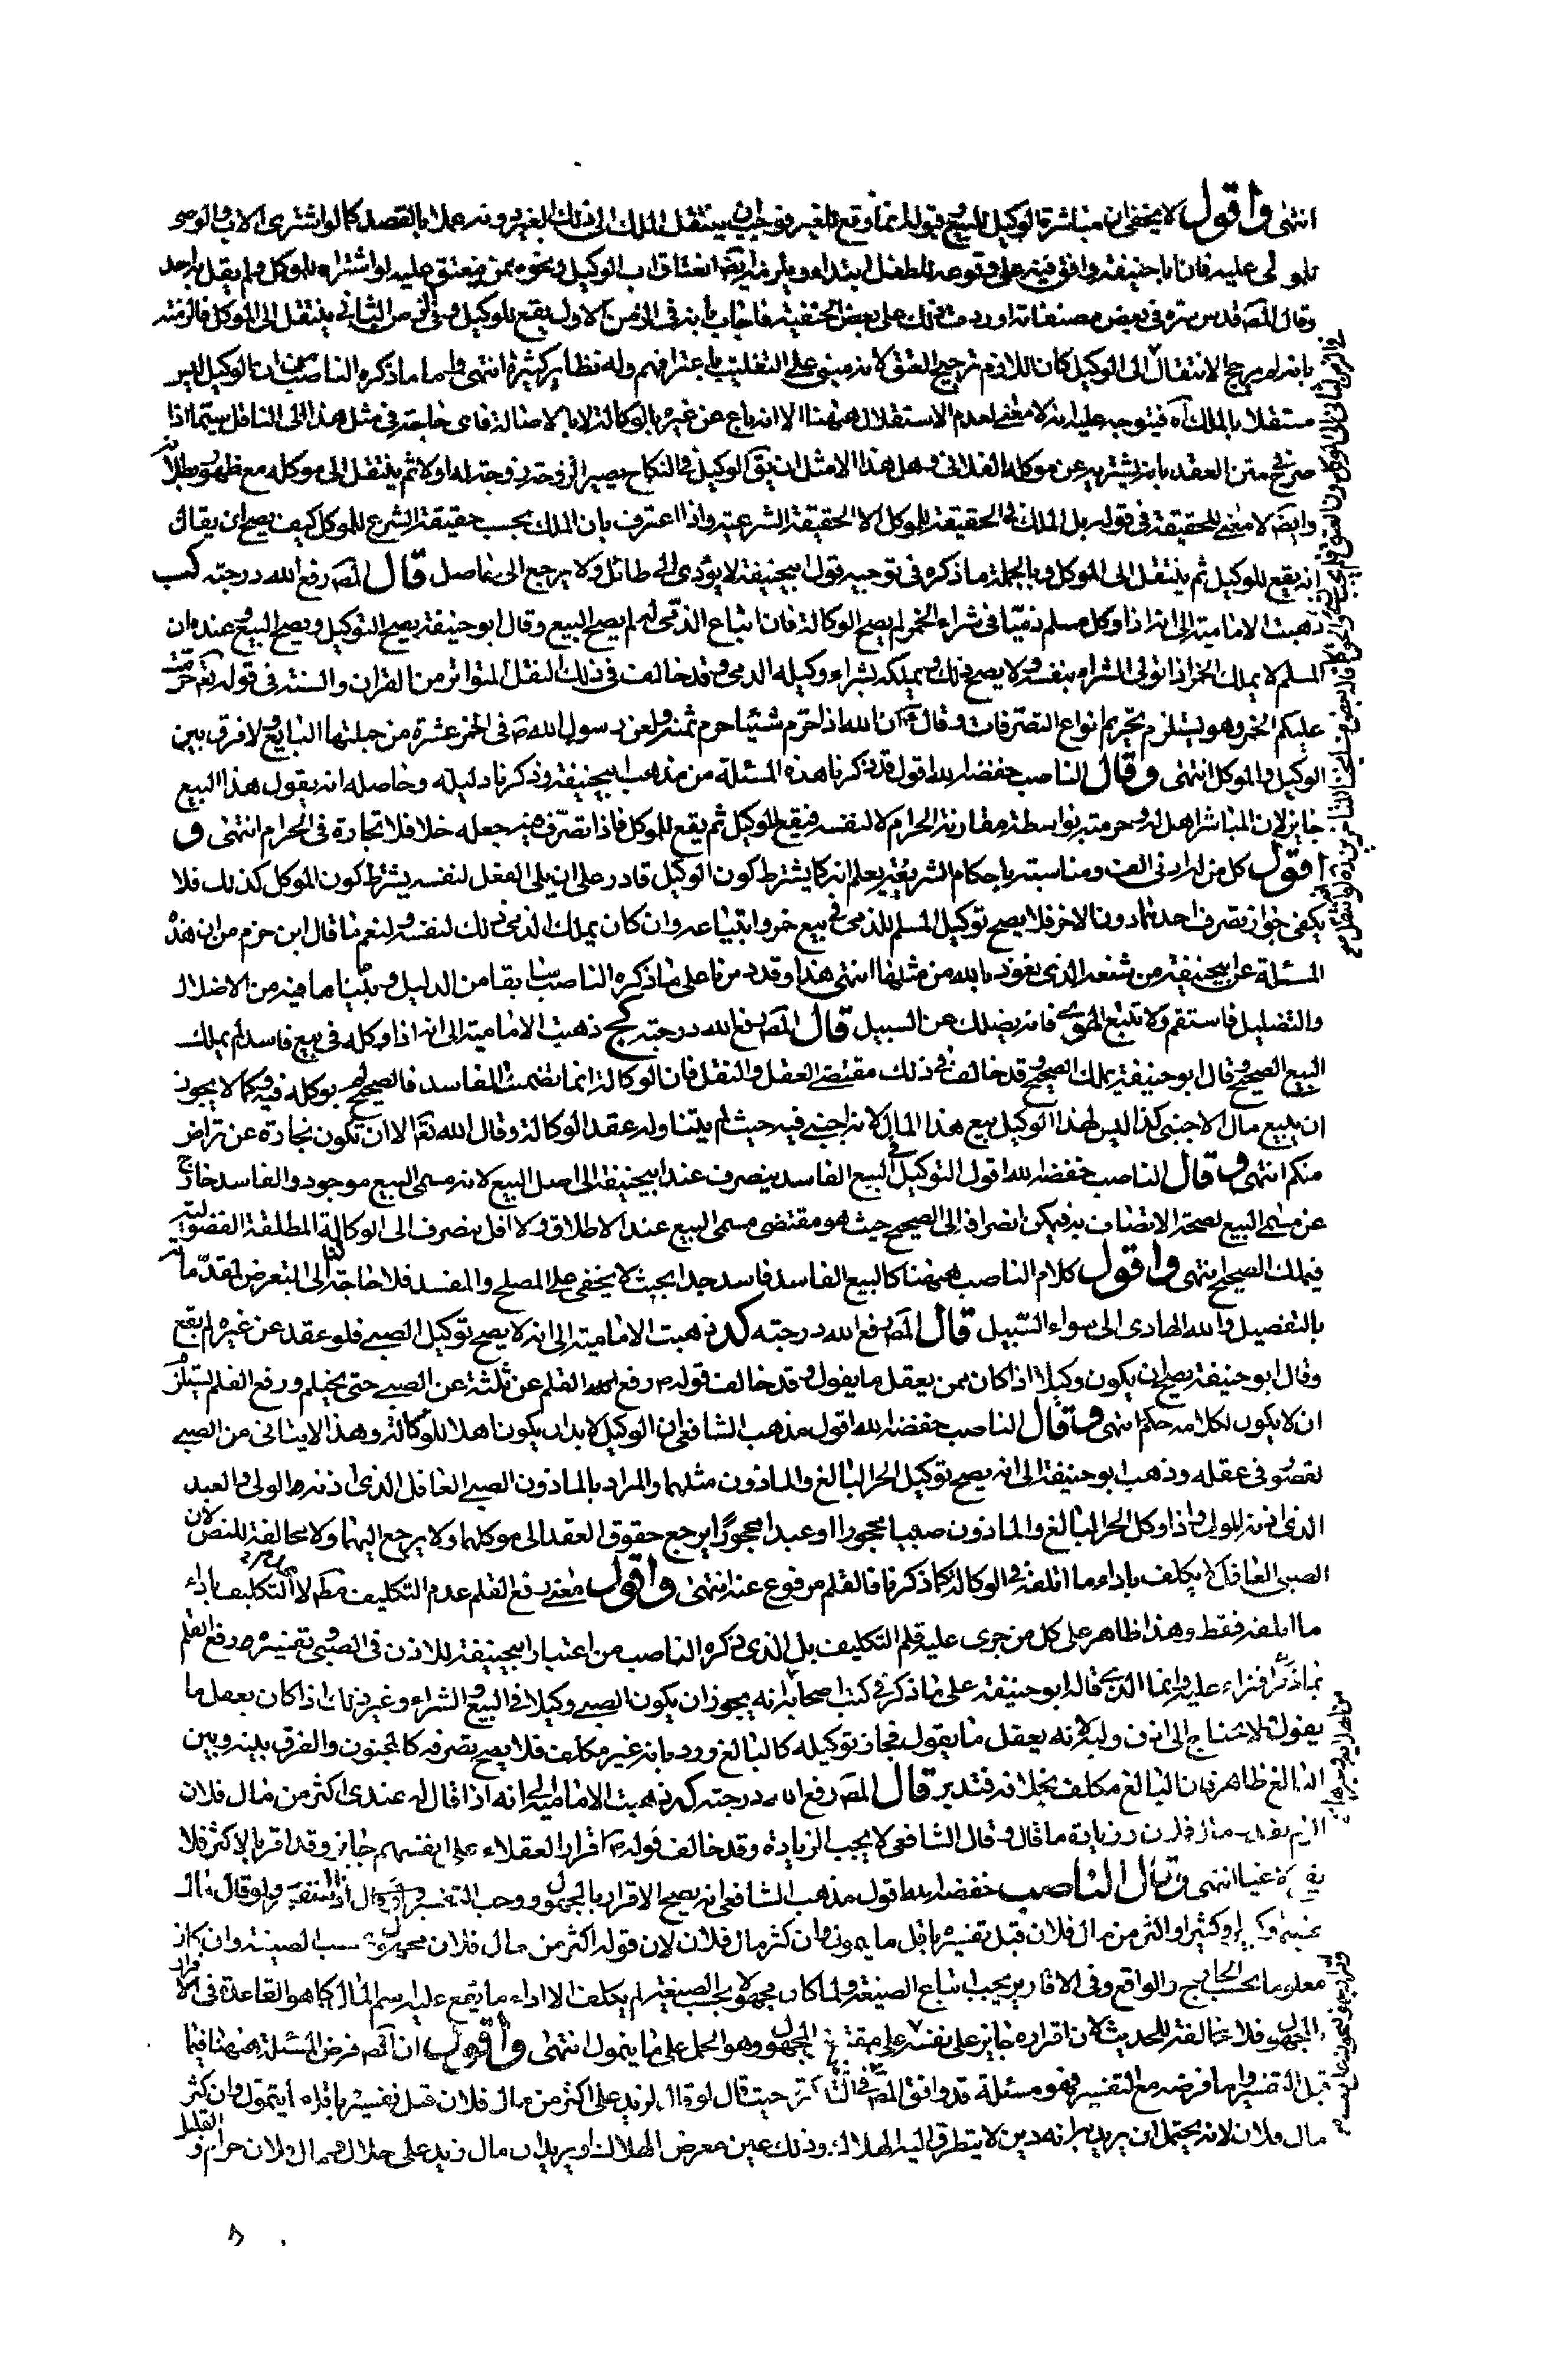 انتهى واقول لا يخفى ان مباشرة الوكيل للبيع وقبوله انما وقع للغير فوجب ان ينتقل الملك الى ذلك الغير دونه عملا بالقصد كما لو اشترى الاب والوصى
للمولى عليه فان ابا حنيفة وافق فيه على وقوعه للطفل ابتداء ويلزمه ايضا انعتاق اب الوكيل ونحوه ممن ينعتق عليه لو اشتراه للموكل ولم يقل به احد
وقال المص قدس سره فى بعض مصنفاته اوردت ذلك على بعض الحنفية فاجاب بانه فى الزمن الاول يقع للوكيل وفى الزمن الثانى ينتقل الى الموكل فالزمته
بانه لم يرجح الانتقال الى الوكيل كان اللازم ترجيح العتق لانه مبنى على التغليب باعترافهم وله نظاير كثيرة انتهى واما ما ذكره الناصب من ان الوكيل ليس
مستقلا بالملك آه فيتوجه عليه انه لا معنى لعدم الاستقلال ههنا الا انه باع عن غيره بالوكالة لا بالاصالة فاى حاجة فى مثل هذا الى الناقل سيما اذا
صرح فى متن العقد بانه يشتريه عن موكله الفلانى وهل هذا الا مثل ان يق الوكيل فى النكاح يصير الزوجة زوجة له اولا ثم ينتقل الى موكله مع ظهور بطلانه
وايضا لا معنى للحقيقة فى قوله بل الملك فى الحقيقة للموكل الا الحقيقة الشرعية واذا اعترف بان الملك بحسب حقيقة الشرع للموكل كيف يصح ان يقال
انه يقع للوكيل ثم ينتقل الى الموكل وبالجملة ما ذكره فى توجيه قول ابيحنيفة لا يؤدى الى طائل ولا يرجع الى حاصل قال المص رفع الله درجته كب
ذهبت الامامية الى انه اذا وكل مسلم ذميا فى شراء الخمر لم يصح الوكالة فان ابتاع الذمى له لم يصح البيع وقال ابو حنيفة يصح التوكيل ويصح البيع وعنده ان
المسلم لا يملك الخمر اذا تولى الشراء بنفسه ولا يصح ذلك ويملكه بشراء وكيله الذمى وقد خالف فى ذلك النقل المتواتر من القران والسنة فى قوله تع حرمت
عليكم الخمر وهو يستلزم تحريم انواع التصرفات وقال ان الله اذا حرم شيئا حرم ثمنه ولعن رسول الله ص فى الخمر عشرة من جملتها البايع ولا فرق بين
الوكيل والموكل انتهى وقال الناصب خفضه الله اقول قد ذكرنا هذه المسئلة من مذهب ابيحنيفة وذكرنا دليله وحاصله انه يقول هذا البيع
جايز لان المباشر اهل له وحرمته بواسطة مقارنة الحرام لا لنفسه فيقع للوكيل ثم يقع للموكل فاذا تصرف فيه جعله خلا فلا تجارة فى الحرام انتهى و
اقول كل من له ادنى الف ومناسبة باحكام الشريعة يعلم انه كما يشترط كون الوكيل قادر على ان يلى الفعل لنفسه يشترط كون الموكل كذلك فلا
يكفى جواز تصرف احدهما دون الاخر فلا يصح توكيل المسلم للذمى فى بيع خمر وابتياعه وان كان يملك الذمى ذلك لنفسه ولنعم ما قال ابن حزم من ان هذه
المسئلة عن ابيحنيفة من شنعه الذى نعوذ بالله من مثلها انتهى هذا وقد مرمنا على ما ذكره الناصب سابقا من الدليل وبينا ما فيه من الاضلال
والتضليل فاستقم ولا تتبع الهوى فانه يضلك عن السبيل قال المص رفع الله درجته كج ذهبت الامامية الى انه اذا وكله فى بيع فاسد لم يملك
البيع الصحيح وقال ابو حنيفة يملك الصحيح وقد خالف فى ذلك مقتضى العقل والنقل فان الوكالة انما تضمنت الفاسد فالصحيح لم يوكله فيه وكما لا يجوز
ان يبيع مال الاجنبى كذا ليس لهذا الوكيل بيع هذا المال لانه اجنبى فيه حيث لم يتناوله عقد الوكالة وقال الله تع الا ان تكون تجارة عن تراض
منكم انتهى وقال الناصب خفضه الله اقول التوكيل فى البيع الفاسد ينصرف عند ابيحنيفة الى اصل البيع لانه مسمى البيع موجود والفاسد خارج
عن مسمى البيع لصحة الاتصاف به فيمكن انصرافه الى الصحيح حيث هو مقتضى مسمى البيع عند الاطلاق ولا اقل ينصرف الى الوكالة المطلقة الفضولية
فيملك الصحيح انتهى واقول كلام الناصب ههنا كالبيع الفاسد فاسد جدا بحيث لا يخفى على المصلح والمفسد فلا حاجة لنا الى التعرض لمقدماته
بالتفصيل والله الهادى الى سواء السبيل قال المص رفع الله درجته كد ذهبت الامامية الى انه لا يصح توكيل الصبى فلو عقد عن غيره لم يقع
وقال ابو حنيفة يصح ان يكون وكيلا اذا كان ممن يعقل ما يقول وقد خالف قوله ص رفع القلم عن ثلثة عن الصبى حتى يحتلم ورفع القلم يستلزم
ان لا يكون لكلامه حكم انتهى وقال الناصب خفضه الله اقول مذهب الشافعى ان الوكيل لا بد ان يكون اهلا للوكالة وهذا لا يتاتى من الصبى
لقصور فى عقله وذهب ابو حنيفة الى انه يصح توكيل الحر البالغ والماذون مثلهما والمراد بالماذون الصبى العاقل الذى اذنه الولى والعبد
الذى اذنه المولى واذا وكل الحر البالغ والماذون صبيا محجورا او عبدا محجورا يرجع حقوق العقد الى موكلهما ولا يرجع اليهما ولا مخالفة للنص لان
الصبى العاقل لا يكلف باداء ما اتلفه فى الوكالة كما ذكرنا فالقلم مرفوع عنه انتهى واقول معنى رفع القلم عدم التكليف مطم لا التكليف باداء
ما اتلفه فقط وهذا ظاهر على كل من جرى عليه قلم التكليف بل الذى ذكره الناصب من اعتبار ابيحنيفة للاذن فى الصبى وتفسيره رفع القلم
بما ذكر افتراء عليه وانما الذى قاله ابو حنيفة على ما ذكر فى كتب اصحابه انه يجوز ان يكون الصبى وكيلا فى البيع والشراء وغير ذلك اذا كان يعقل ما
يقول لا يحتاج الى اذن وليه لانه يعقل ما يقول فجاز توكيله كالبالغ ورد بانه غير مكلف فلا يصح تصرفه كالمجنون والفرق بينه وبين
البالغ ظاهر فان البالغ مكلف بخلافه فتدبر قال المص رفع الله درجته كه ذهبت الامامية الى انه اذا قال له عندى اكثر من مال فلان
الزم بقدر مال فلان وزيادة ما قال وقال الشافعى لا يجب الزيادة وقد خالف قوله ص اقرار العقلاء على انفسهم جايز وقد اقر بالاكثر فلا
انتهى وقال الناصب خفضه الله اقول مذهب الشافعى انه يصح الاقرار بالمجهول ووجب التفسير ولو قال مال
او كثير او اكثر من مال فلان قبل تفسيره باقل ما يتمول وان كثر مال فلان لان قوله اكثر من مال فلان مجهول بحسب الصيغة وان كان
معلوما بحسب الخارج والواقع وفى الاقارير يجب اتباع الصيغة ولما كان مجهولا بحسب الصيغة لم يكلف الا اداء ما يقع عليه اسم المال كما هو القاعدة فى الاقرار
بالمجهول فلا مخالفة للحديث لان اقراره جايز على نفسه على مقتضى المجهول وهو الحمل على ما يتمول انتهى واقول ان المص فرض المسئلة ههنا فيما
قبل التفسير واما فرضه مع التفسير فهو مسئلة قد وافق المص فى التذكرة حيث قال لو قال لزيد على اكثر من مال فلان قبل تفسيره باقل ما يتمول وان كثر
مال فلان لانه يحتمل ان يريد به انه دين لا يتطرق اليه الهلاك وذلك عين معرض للهلاك او يريد ان مال زيد على حلال ومال فلان حرام والقليل